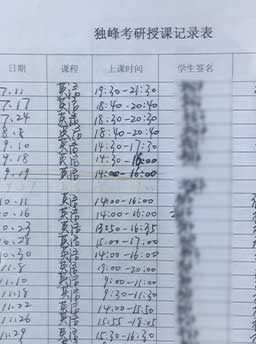 独峰考研授课记录表
日期 课程 上课时间 学生签名
7.11 英语 19:30-21:30
7.17 英语 18:40-20:40
7.24 英语 18:30-20:30
8.8 英语 18:40-20:40
9.10 英语 14:30-17:30
9.18 英语 14:30-16:00
9.19 英语 14:00-16:00
10.11 英语 14:00-16:00
10.16 英语 14:00-16:00
10.23 英语 13:50-16:35
10.28 英语 15:00-17:00
10.30 英语 14:00-16:00
11.8 英语 19:00-20:00
11.10 英语 9:00-11:00
11.18 英语 9:30-11:30
11.22 英语 14:00-15:50
11.26 英语 15:55-18:05
11.29 英语 15:30-16:30